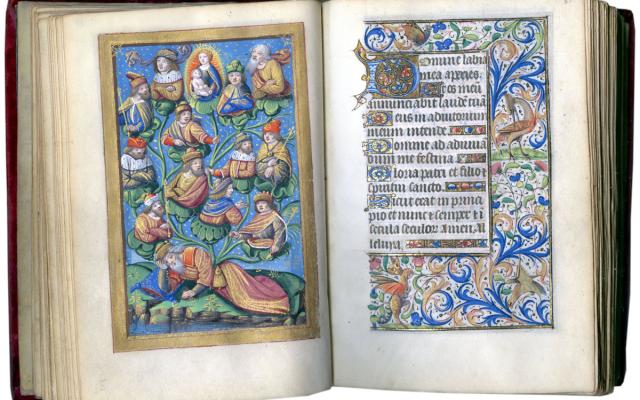 Domine labia
mea aperies.
Et os meū
nunciabit laudē tuā
Deus in adiutorium
meum intende
Domine ad adiuvā
dum me festina
Gloria patri et filio et
spiritui sancto.
Sicut erat in princi
pio et nunc et semper et ī
secula seculor amen. Al
leluya